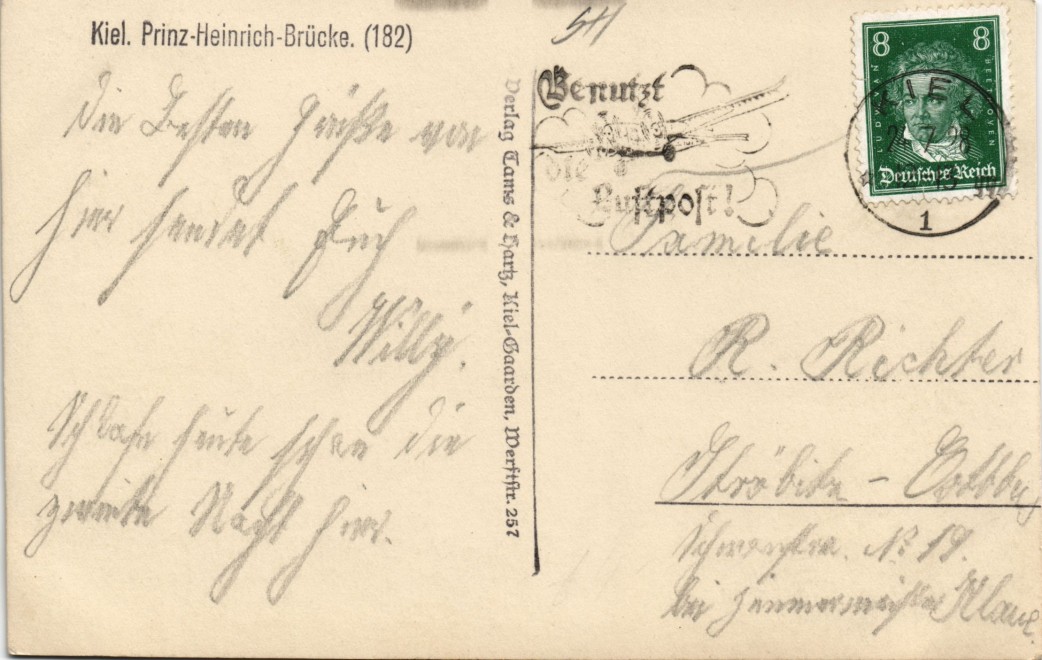 Kiel. Prinz-Heinrich-Brücke. (182)
Die Besten Grüße von
hier sendet Euch
Willy.
Schlafe heute schon die
zweite Nacht hier.
Verlag Tams & Hartz, Kiel-Gaarden, Werftstr. 257
Benutzt
die
Luftpost!
8 8
LUDW VAN BEETHOVEN
Deutsches Reich
KIEL
7.28
1
Familie
R. Richter
Ströbitz - Cottbus
No 19.
bei Zimmermeister Klaue